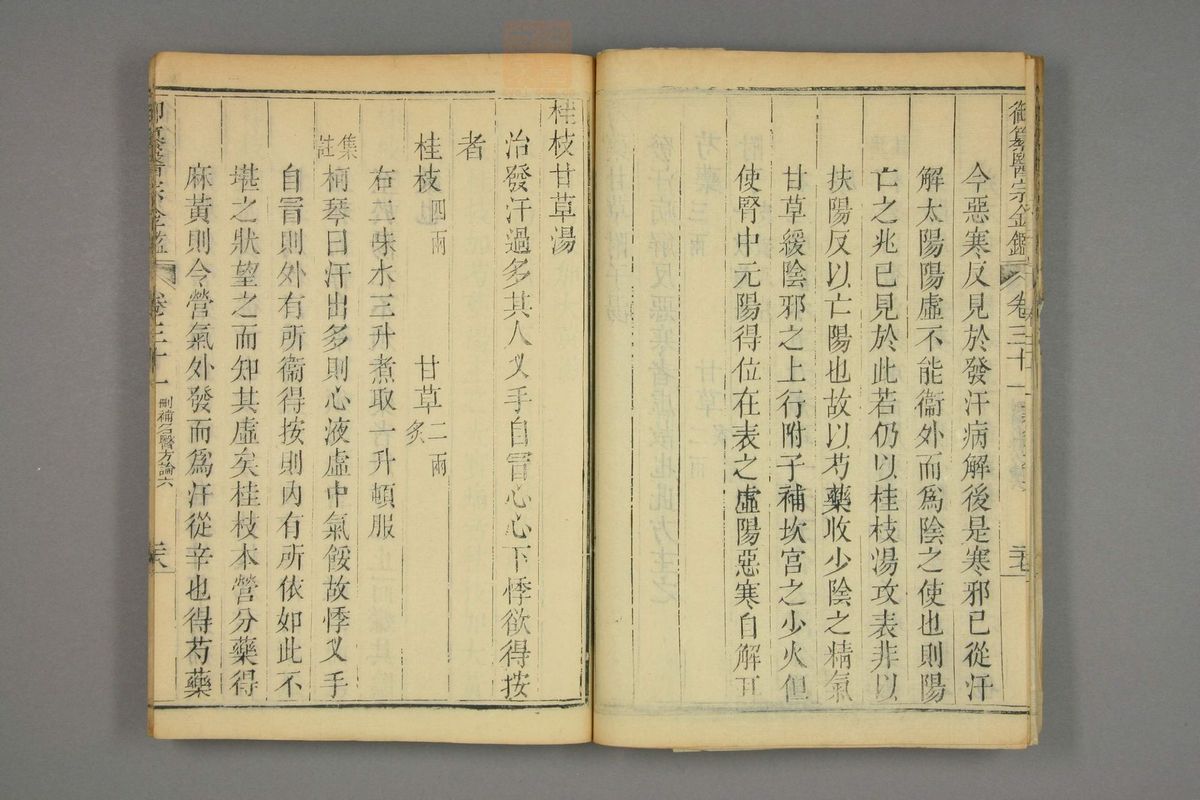 御纂醫宗金鑑 卷三十一
今惡寒反見於發汗病解後是寒邪已從汗
解太陽陽虛不能衞外而爲陰之使也則陽
亡之兆已見於此若仍以桂枝湯攻表非以
扶陽反以亡陽也故以芍藥收少陰之精氣
甘草緩陰邪之上行附子補坎宮之少火但
使腎中元陽得位在表之虛陽惡寒自解耳
桂枝甘草湯
治發汗過多其人叉手自冒心心下悸欲得按
者
桂枝四兩 甘草二兩炙
右二味水三升煮取一升頓服
集註柯琴曰汗出多則心液虛中氣餒故悸叉手
自冒則外有所衞得按則內有所依如此不
堪之狀望之而知其虛矣桂枝本營分藥得
麻黃則令營氣外發而爲汗從辛也得芍藥
御纂醫宗金鑑 卷三十一 刪補名醫方論六